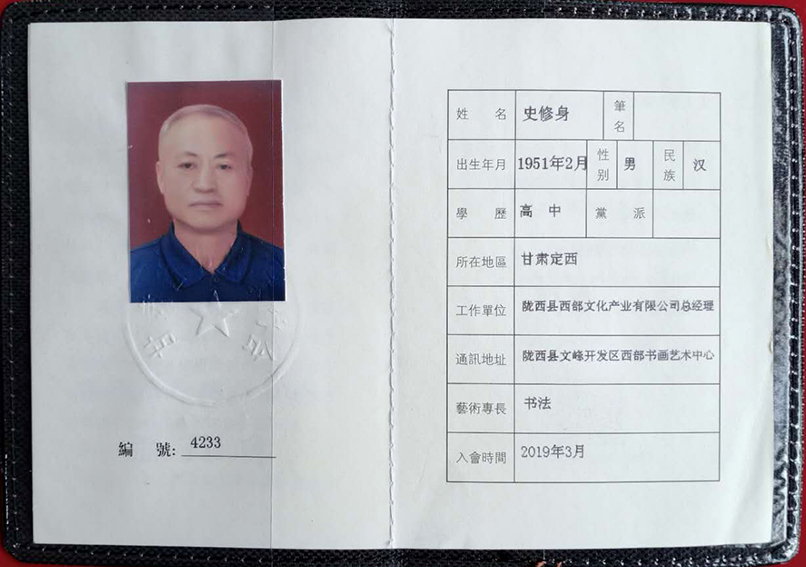 編 號: 4233
姓 名 史修身 筆名
出生年月 1951年2月 性别 男 民族 汉
學 歷 高 中 黨 派
所在地區 甘肃定西
工作單位 陇西县西部文化产业有限公司总经理
通訊地址 陇西县文峰开发区西部书画艺术中心
藝術專長 书法
入會時間 2019年3月